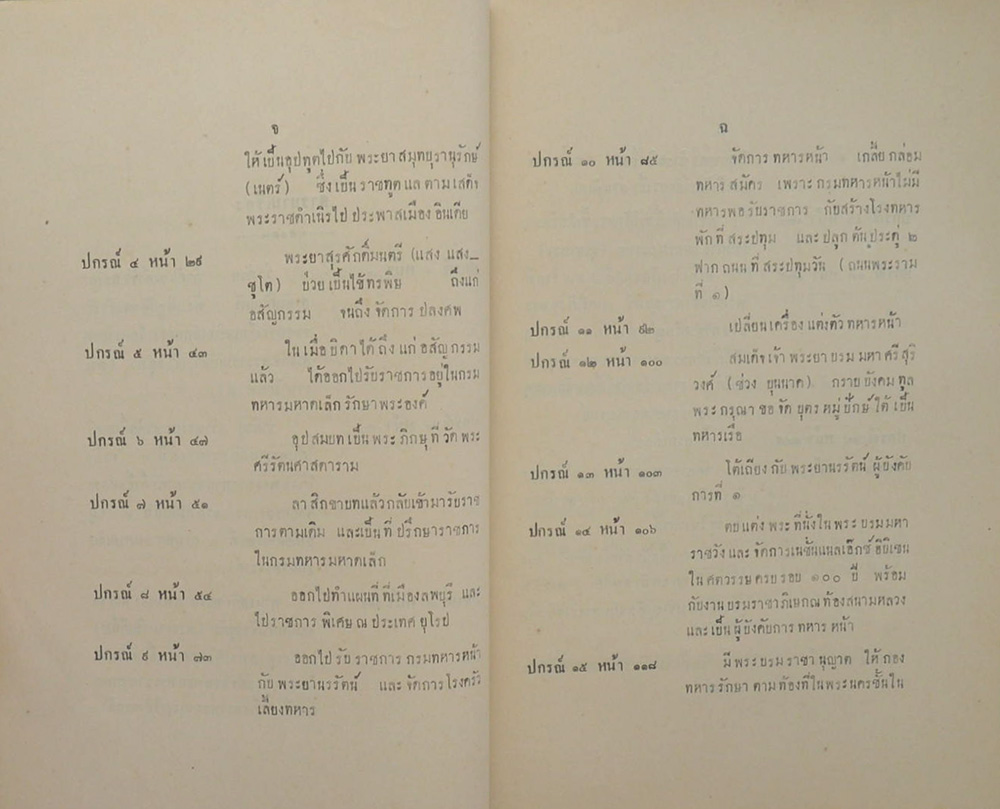 จ
ให้เป็นอุปทูตไปกับ พระยาสมุทบุรานุรักษ์
(เนตร์) ซึ่งเป็นราชทูตแลตามเสด็จ
พระราชดำเนิรไปประพาสเมืองอินเดีย
ปกรณ์ ๔ หน้า ๒๙ พระยาสุรศักดิ์มนตรี (แสง แสง_
ชูโต) ป่วยเป็นไข้ทรพิษ ถึงแก่
อสัญกรรม จนถึงจัดการปลงศพ
ปกรณ์ ๕ หน้า ๔๓ ในเมื่อบิดาได้ถึงแก่อสัญกรรม
แล้ว ได้ออกไปรับราชการอยู่ในกรม
ทหารมหาดเล็กรักษาพระองค์
ปกรณ์ ๖ หน้า ๔๗ อุปสมบทเป็นพระภิกษุที่วัดพระ
ศรีรัตนศาสดาราม
ปกรณ์ ๗ หน้า ๕๑ ลาสิกขาบทแล้วกลับเข้ามารับราช
การตามเดิม และเป็นที่ปรึกษาราชการ
ในกรมทหารมหาดเล็ก
ปกรณ์ ๘ หน้า ๕๔ ออกไปทำแผนที่ที่เมืองลพบุรี และ
ไปราชการพิเศษ ณ ประเทศยุโรป
ปกรณ์ ๙ หน้า ๗๓ ออกไปรับราชการกรมทหารหน้า
กับพระยานรรัตน์ และจัดการโรงครัว
เลี้ยงทหาร
ฉ
ปกรณ์ ๑๐ หน้า ๘๕ จัดการทหารหน้า เกลี้ยกล่อม
ทหารสมัคร เพราะกรมทหารหน้าไม่มี
ทหารพอรับราชการ กับสร้างโรงทหาร
พักที่สระปทุม และปลูกต้นประดู่ ๒
ฟากถนนที่สระปทุมวัน (ถนนพระราม
ที่ ๑)
ปกรณ์ ๑๑ หน้า ๙๒ เปลี่ยนเครื่องแต่งตัวทหารหน้า
ปกรณ์ ๑๒ หน้า ๑๐๐ สมเด็จเจ้าพระยาบรมมหาศรีสุริ
วงศ์ (ช่วง บุนนาค) กราบบังคมทูล
พระกรุณาขอจัดบุตรหมู่ปักษ์ใต้เป็น
ทหารเรือ
ปกรณ์ ๑๓ หน้า ๑๐๓ โต้เถียงกับพระยานรรัตน์ ผู้บังคับ
การที่ ๑
ปกรณ์ ๑๔ หน้า ๑๐๖ ตบแต่งพระที่นั่งในพระบรมมหา
ราชวังและจัดการเนชั่นแนลเอ็กซ์ฮิบิเชน
ในศตวรรษครบรอบ ๑๐๐ ปี พร้อม
กับงานบรมราชาภิเษกณท้องสนามหลวง
และเป็นผู้บังคับการทหารหน้า
ปกรณ์ ๑๕ หน้า ๑๑๘ มีพระบรมราชานุญาต ให้กอง
ทหารรักษาตามท้องที่ในพระนครชั้นใน